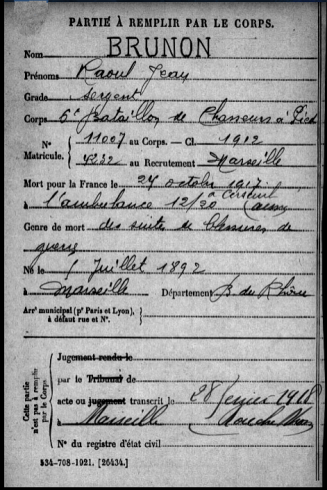 PARTIE À REMPLIR PAR LE CORPS.
Nom BRUNON
Prénoms Raoul Jean
Grade Sergent
Corps 6e Bataillon de Chasseurs à Pied
N° Matricule. { 11007 au Corps. — Cl. 1912
4232 au Recrutement Marseille
Mort pour la France le 27 octobre 1917
à l'ambulance 12/20 à
Genre de mort des suite de blessures de
guerre
Né le Juillet 1892
à Marseille Département B du Rhône
Arrt municipal (pr Paris et Lyon), à défaut rue et N°. {
Cette partie n'est pas à remplir par le Corps.
Jugement rendu le
par le Tribunal de
acte ou jugement transcrit le 28 1918
à Marseille
N° du registre d'état civil
534-708-1921. [26434.]